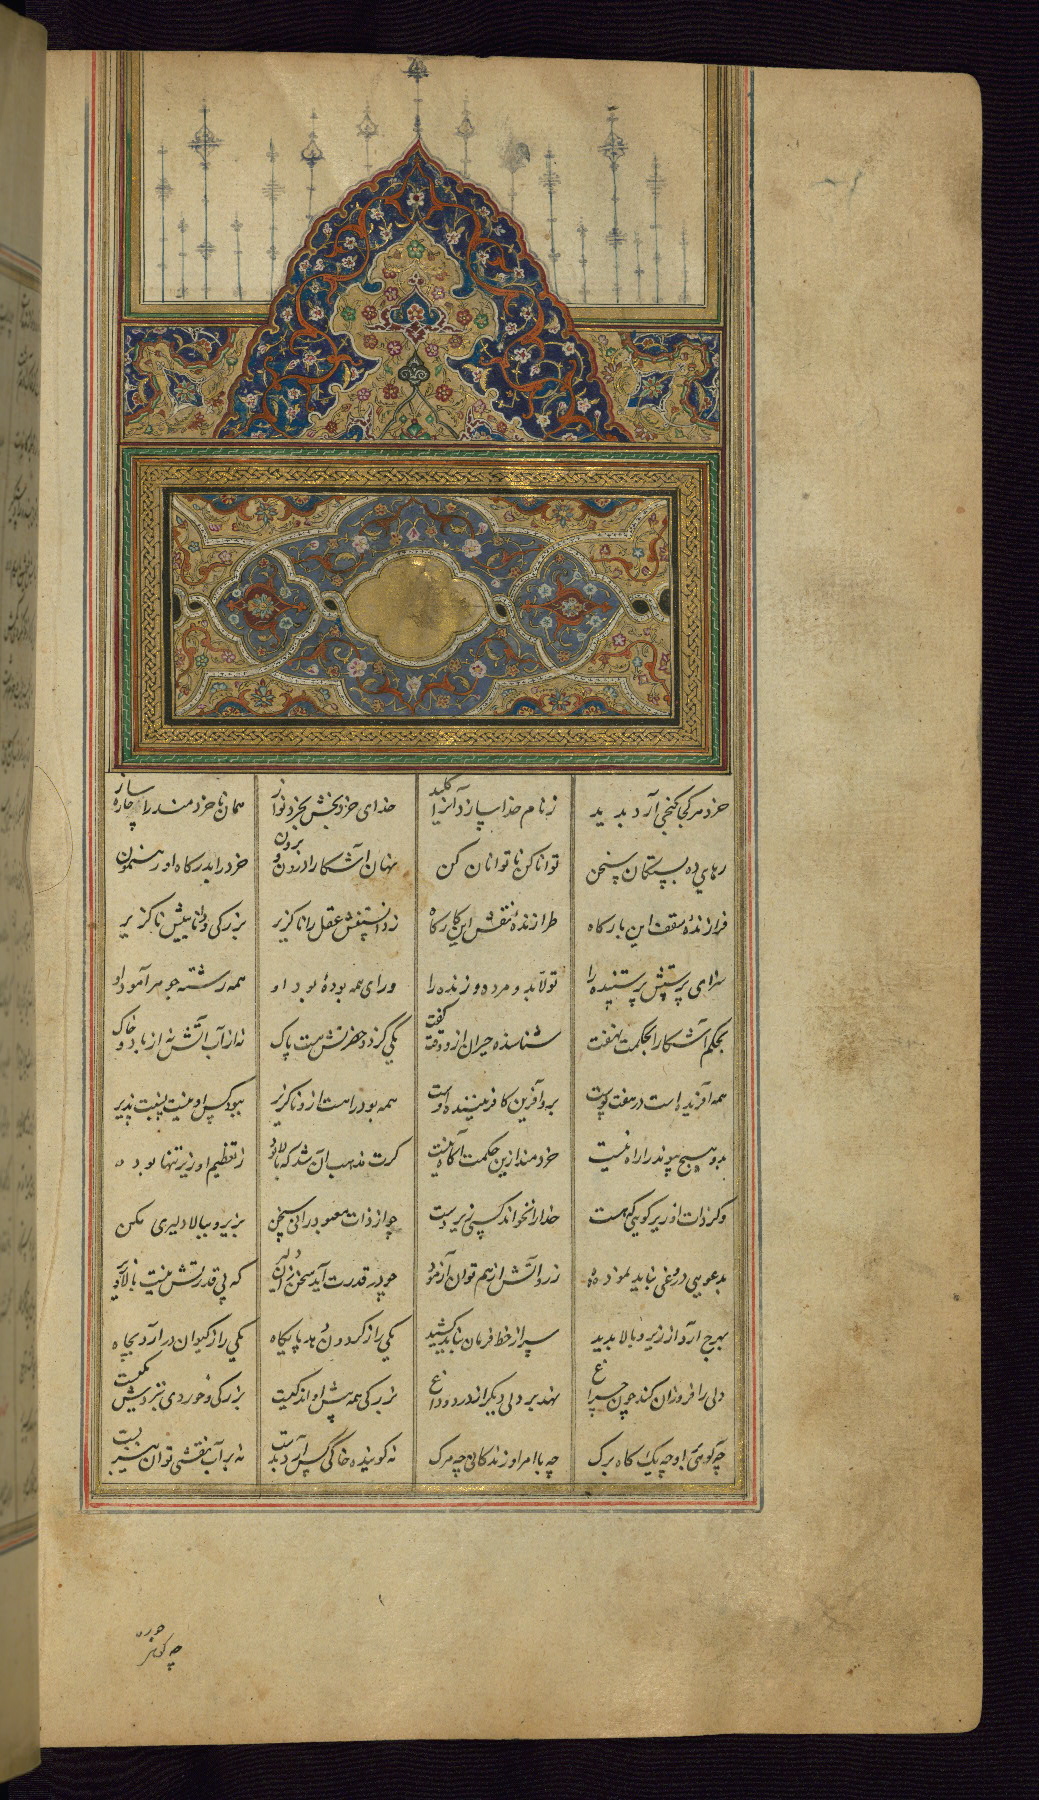 خرد هر کجا گنجی آرد بدید ز نام خدا سازد آنرا کلید خدای خرد بخش بخرد نواز همان ناخردمند را چاره ساز
رهایی ده بستگان سخن توانا کن ناتوانان کن نهان آشکارا درون و برون خرد را بدرگاه او رهنمون
فرازنده سقف این بارگاه طرازنده نقش این کارگاه ز دانستنش عقل را ناگزیر بزرگی و دانائیش ناگزیر
سزای پرستش پرستنده را تولا بدو مرده و زنده را ورای همه بوده بود او همه رشته جوهر آمود او
بحکم آشکارا بحکمت نهفت شناسنده حیران ازو وقت گفت یکی کز دو حضرتش هست پاک نه از آب و آتش نه از باد و خاک
همه آفریده است در هفت پوست بدو آفرین کافریننده اوست همه بود را هست ازو ناگزیر ببود کس او نیست نسبت پذیر
بدو هیچ پوینده را راه نیست خردمند ازین حکمت آگاه نیست گرت مذهب آن شد که بالا بود ز تعظیم او زیر تنها بود
وگر ذات او زیر گویی که هست خدا را نخواند کسی زیردست چو از ذات معبود رانی سخن بزیر و ببالا دلیری مکن
بدعویی دروغی نباید نمود زر و آتش از هم توان آزمود چو در قدرت آید سخن زان دلیر که بی قدرتش نیست بالا و زیر
بهرچ آرد از زیر و بالا بدید سر از خط فرمان نباید کشید یکی را ز گردون دهد پایگاه یکی را ز کیوان در آرد بچاه
دلی را فروزان کند چون چراغ نهد بر دلی دیگر از درد داغ بزرگی همه پیش او اندکیست بزرگی و خوردی بنزدش یکیست
چه کوهی بر او چه یک کاه برگ چه با امر او زندگانی چه مرگ نه گوینده خاکی پس آرد بدست نه بر آب نقشی توان نیز بست
چه کوهنر